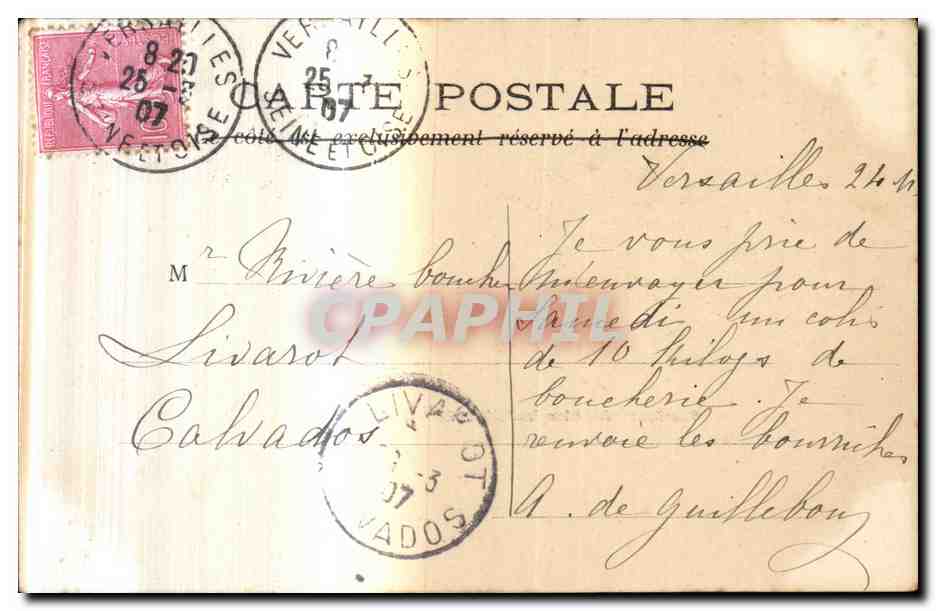 VERSAILLES
8 20
25 - 3
07
SEINE ET OISE
VERSAILLES
8
25 - 3
07
SEINE ET OISE
REPUBLIQUE FRANÇAISE
10
CARTE POSTALE
Ce côté est exclusivement réservé à l'adresse
Versailles 24
Je vous prie de
m'envoyer pour
Samedi un colis
de 10 Kilogs de
boucherie. Je
renvoie les bourriches
A. de Guillebon
Mr Rivière boucher
Livarot
Calvados
LIVAROT
-3
07
VADOS
CPAPHIL